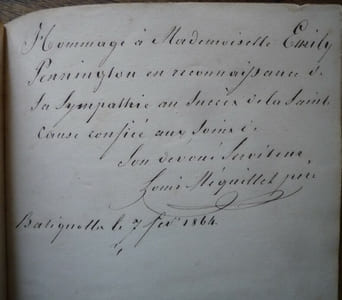 Hommage à Mademoiselle Emily
Pennington en reconnaissance de
Sa Sympathie au Succès de la Sainte
cause confiée aux Soins de
Son dévoué Serviteur
Louis
Batignolles le 7 fév 1864.